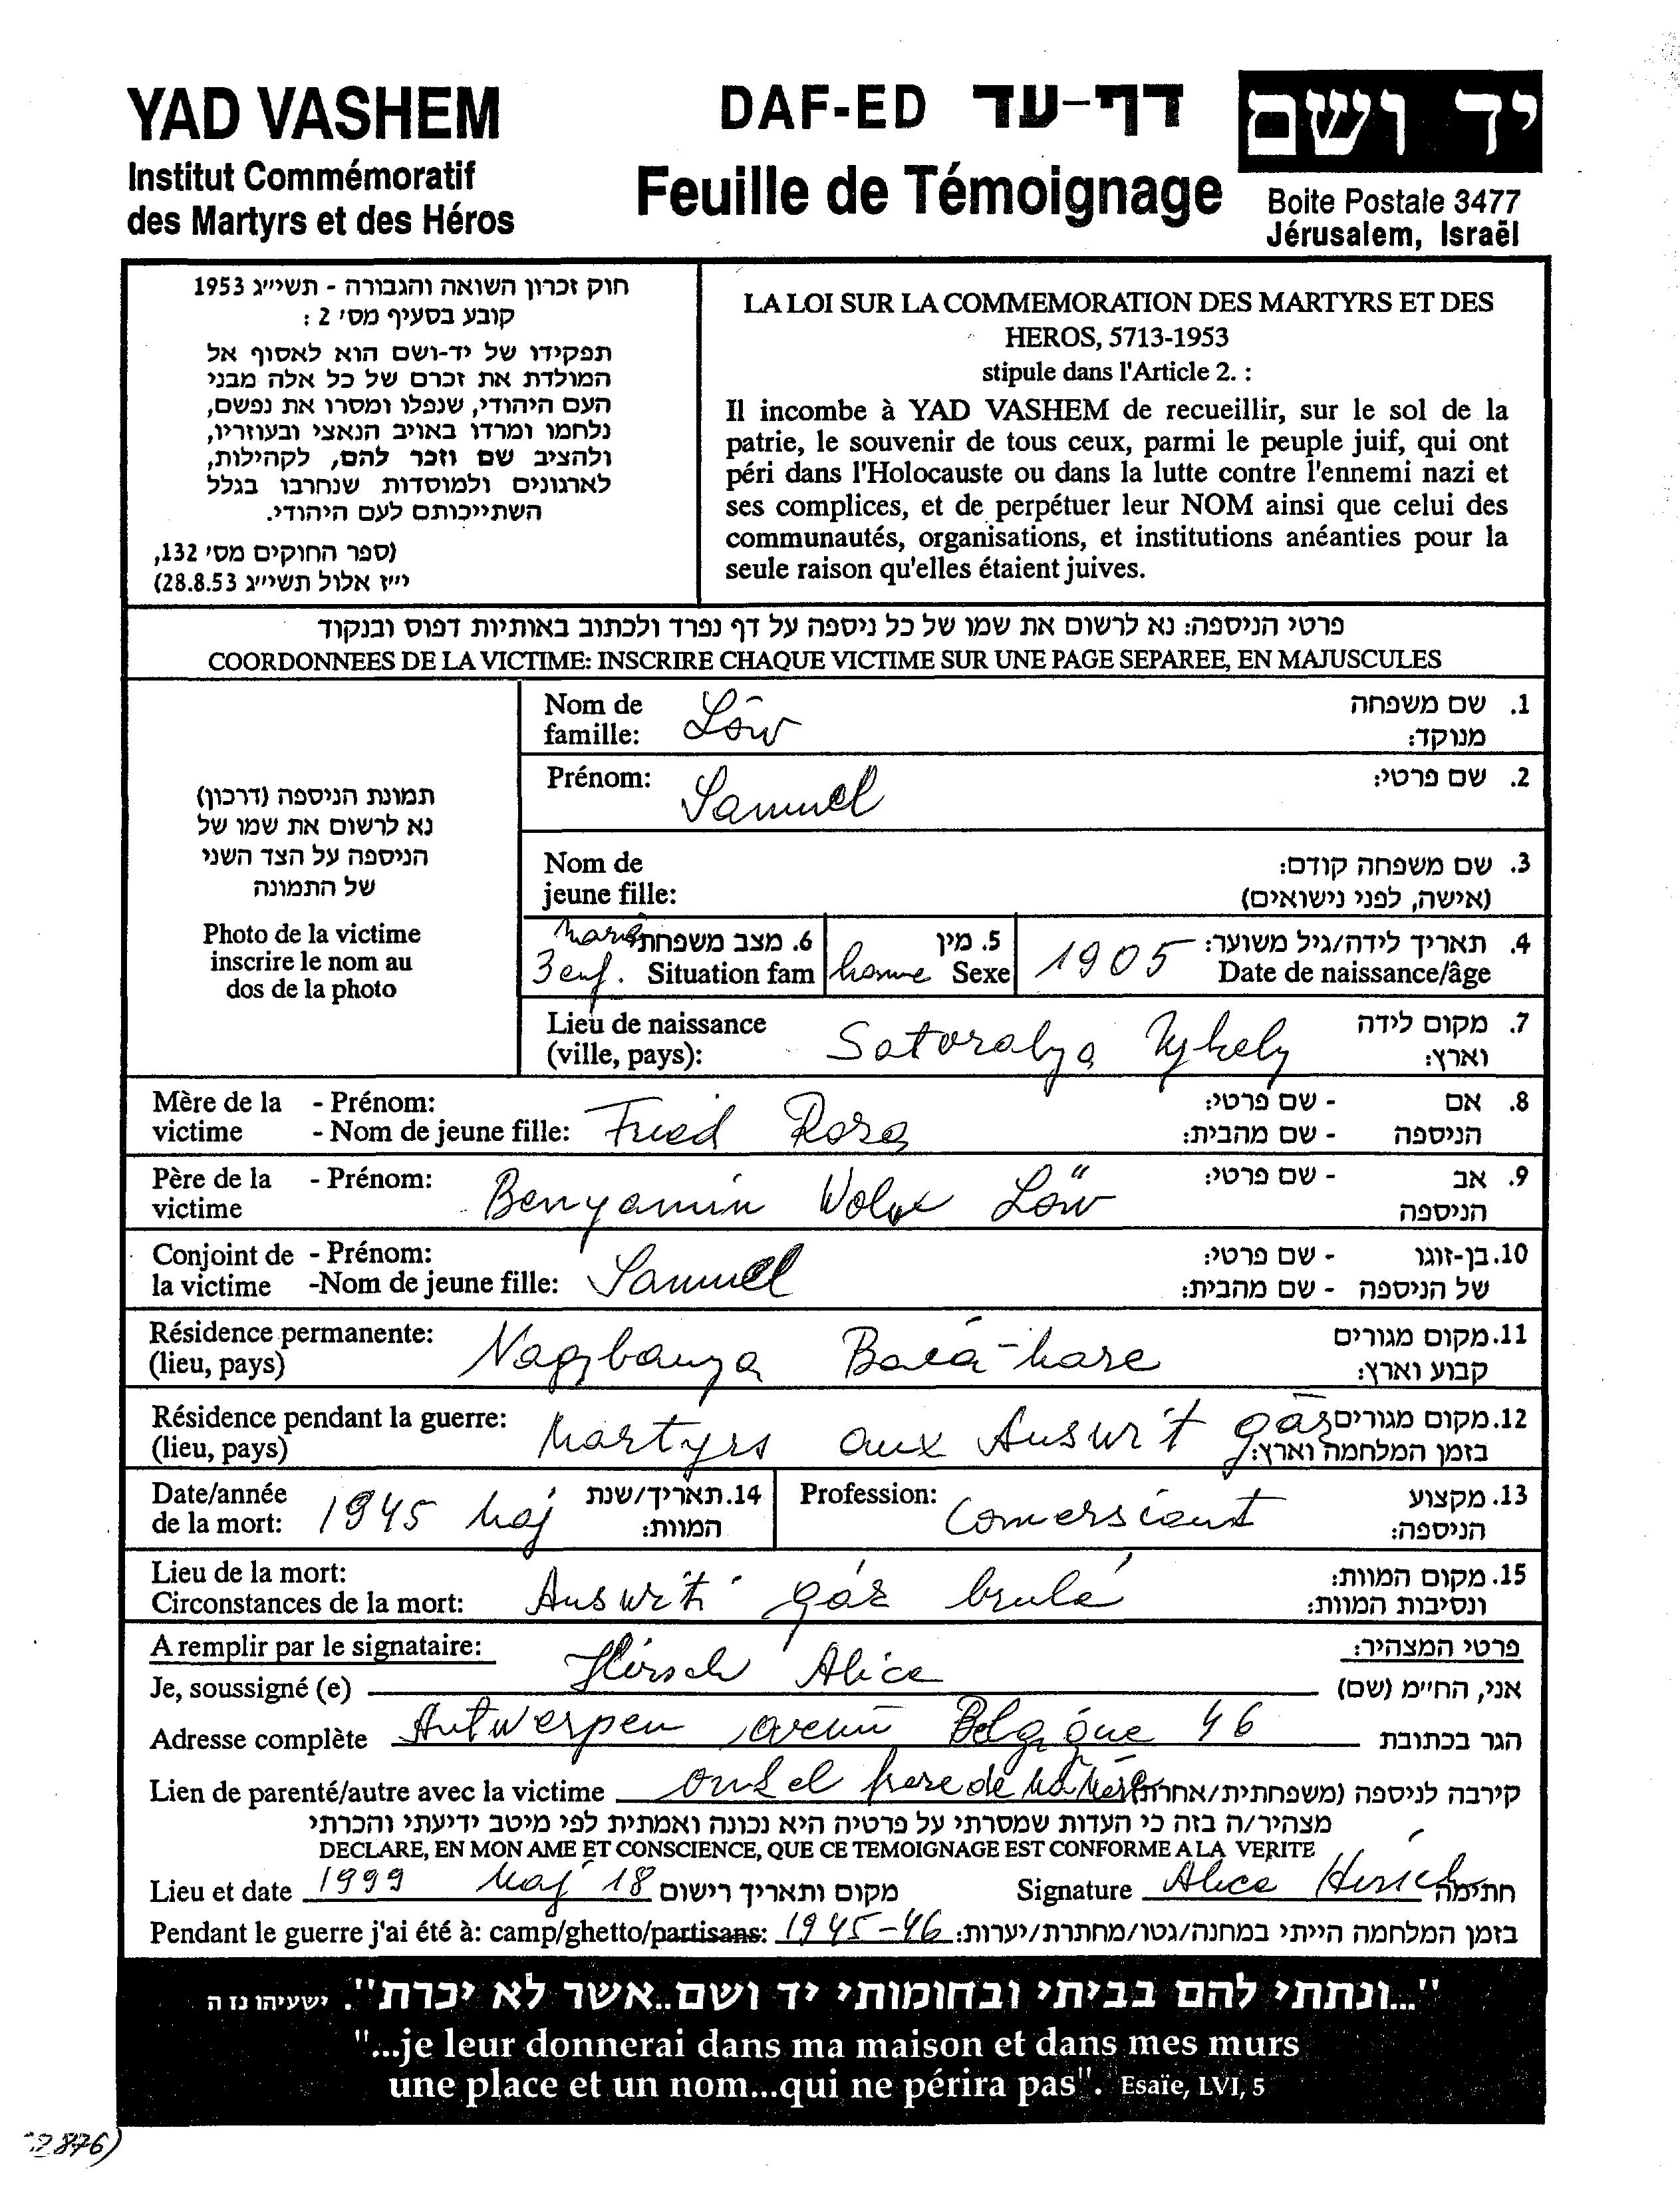 YAD VASHEM
Institut Commémoratif
des Martyrs et des Héros
DAF-ED דף-עד
Feuille de Témoignage
יד ושם
Boite Postale 3477
Jérusalem, Israël
חוק זכרון השואה והגבורה - תשי״ג 1953
קובע בסעיף מס׳ 2 :
תפקידו של יד-ושם הוא לאסוף אל
המולדת את זכרם של כל אלה מבני
העם היהודי, שנפלו ומסרו את נפשם,
נלחמו ומרדו באויב הנאצי ובעוזריו,
ולהציב שם וזכר להם, לקהילות,
לארגונים ולמוסדות שנחרבו בגלל
השתייכותם לעם היהודי.
(ספר החוקים מס׳ 132,
י״ז אלול תשי״ג 28.8.53)
LA LOI SUR LA COMMEMORATION DES MARTYRS ET DES
HEROS, 5713-1953
stipule dans l'Article 2. :
Il incombe à YAD VASHEM de recueillir, sur le sol de la
patrie, le souvenir de tous ceux, parmi le peuple juif, qui ont
péri dans l'Holocauste ou dans la lutte contre l'ennemi nazi et
ses complices, et de perpétuer leur NOM ainsi que celui des
communautés, organisations, et institutions anéanties pour la
seule raison qu'elles étaient juives.
פרטי הניספה: נא לרשום את שמו של כל ניספה על דף נפרד ולכתוב באותיות דפוס ובנקוד
COORDONNEES DE LA VICTIME: INSCRIRE CHAQUE VICTIME SUR UNE PAGE SEPAREE, EN MAJUSCULES
תמונת הניספה (דרכון)
נא לרשום את שמו של
הניספה על הצד השני
של התמונה
Photo de la victime
inscrire le nom au
dos de la photo
Nom de Löw 1. שם משפחה
famille: מנוקד:
Prénom: Samuel 2. שם פרטי:
Nom de 3. שם משפחה קודם:
jeune fille: (אישה, לפני נישואים)
6. מצב משפחתי 5. מין 4. תאריך לידה/גיל משוער:
3 enf. Situation fam homme Sexe 1905 Date de naissance/âge
Lieu de naissance Satoralya Ujhely 7. מקום לידה
(ville, pays): וארץ:
Mère de la - Prénom: 8. אם - שם פרטי:
victime - Nom de jeune fille: Fried Rosa הניספה - שם מהבית:
Père de la - Prénom: Benyamin Löw 9. אב - שם פרטי:
victime הניספה
Conjoint de - Prénom: 10. בן-זוגו - שם פרטי:
la victime -Nom de jeune fille: Samuel של הניספה - שם מהבית:
Résidence permanente: Nagybanya 11. מקום מגורים
(lieu, pays) קבוע וארץ:
Résidence pendant la guerre: Martyrs aux Auswit gás 12. מקום מגורים
(lieu, pays) בזמן המלחמה וארץ:
Date/année 14. תאריך/שנת Profession: 13. מקצוע
de la mort: 1945 Maj המוות: Comersiant הניספה:
Lieu de la mort: 15. מקום המוות:
Circonstances de la mort: Auswiti gáz brulé ונסיבות המוות:
A remplir par le signataire: פרטי המצהיר:
Je, soussigné (e) Hirsch Alice אני, החי״מ (שם)
Adresse complète Antwerpen Belgique 46 הגר בכתובת
Lien de parenté/autre avec la victime onkel frere de קירבה לניספה (משפחתית/אחרת)
מצהיר/ה בזה כי העדות שמסרתי על פרטיה היא נכונה ואמתית לפי מיטב ידיעתי והכרתי
DECLARE, EN MON AME ET CONSCIENCE, QUE CE TEMOIGNAGE EST CONFORME A LA VERITE
Lieu et date 1999 Maj 18 מקום ותאריך רישום Signature Alice Hirsch חתימה
Pendant le guerre j'ai été à: camp/ghetto/partisans: 1945-46 בזמן המלחמה הייתי במחנה/גטו/מחתרת/יערות:
"...ונתתי להם בביתי ובחומותי יד ושם..אשר לא יכרת". ישעיהו נז ה
"...je leur donnerai dans ma maison et dans mes murs
une place et un nom...qui ne périra pas". Esaïe, LVI, 5